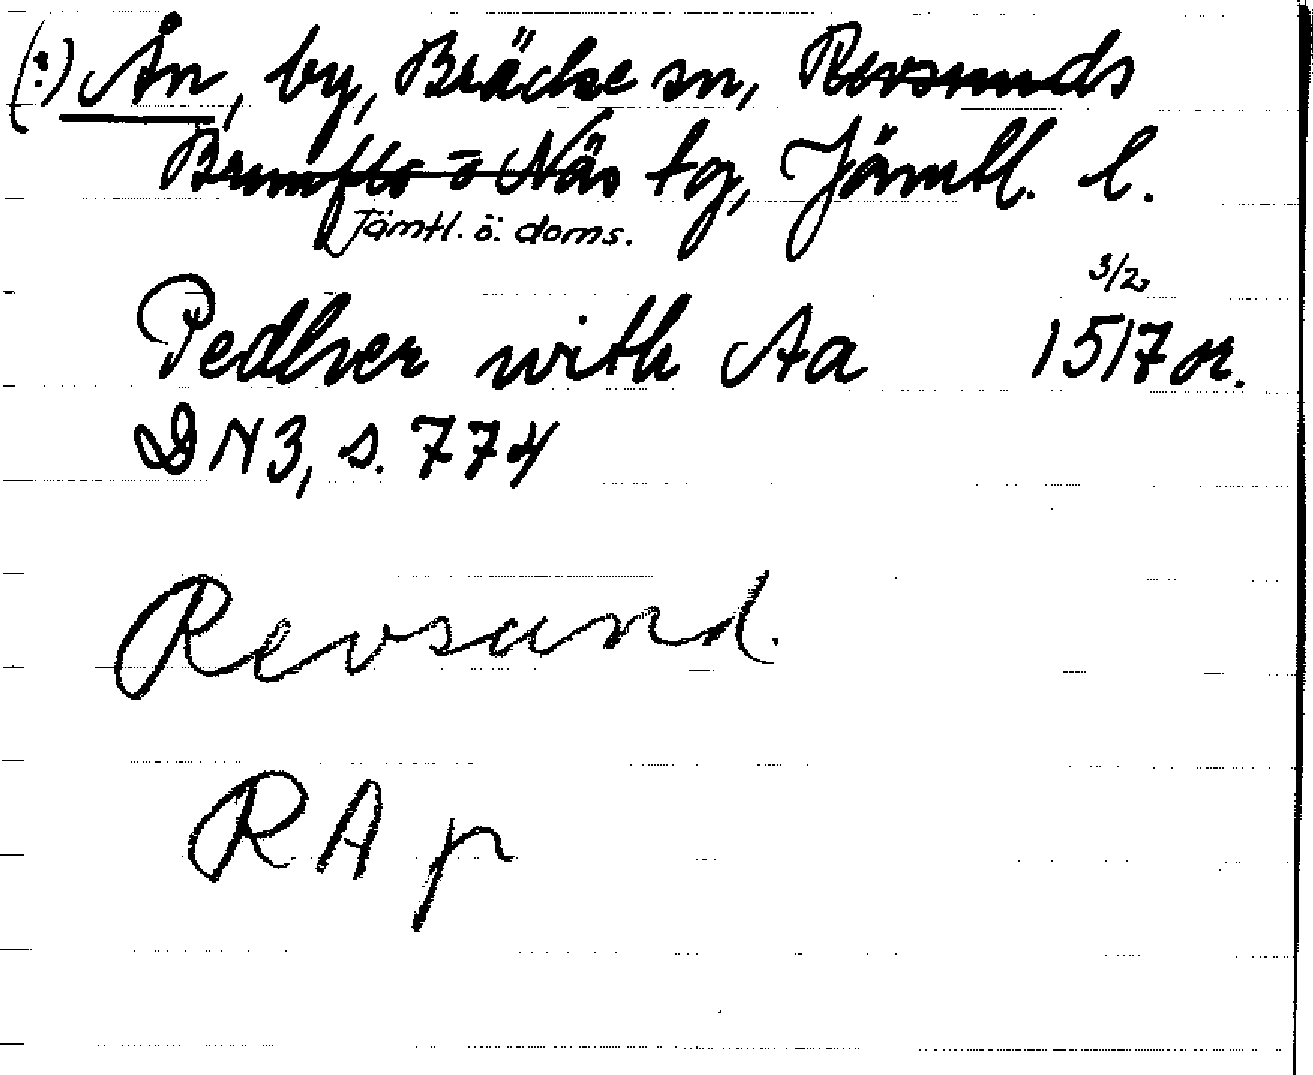 (:) Ån, by, Bräcke sn, Revsunds
Brunflo o Näs tg, Jämtl. l.
Jämtl. ö. doms.
3/2
Pedher with Aa 1517 or.
DN 3, s. 774
Revsund.
RA p